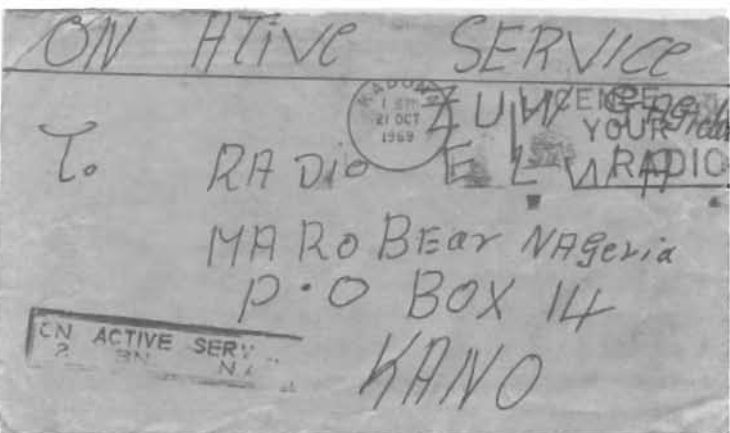 ON ATive SERVICe
KADUNA
1 PM
21 OCT
1969
LICENSE
YOUR
RADIO
ZUWA
To RADio ELWA
MARoBEar NAgeria
P.O BOX 14
KANO
ON ACTIVE SERV
2 BN NA